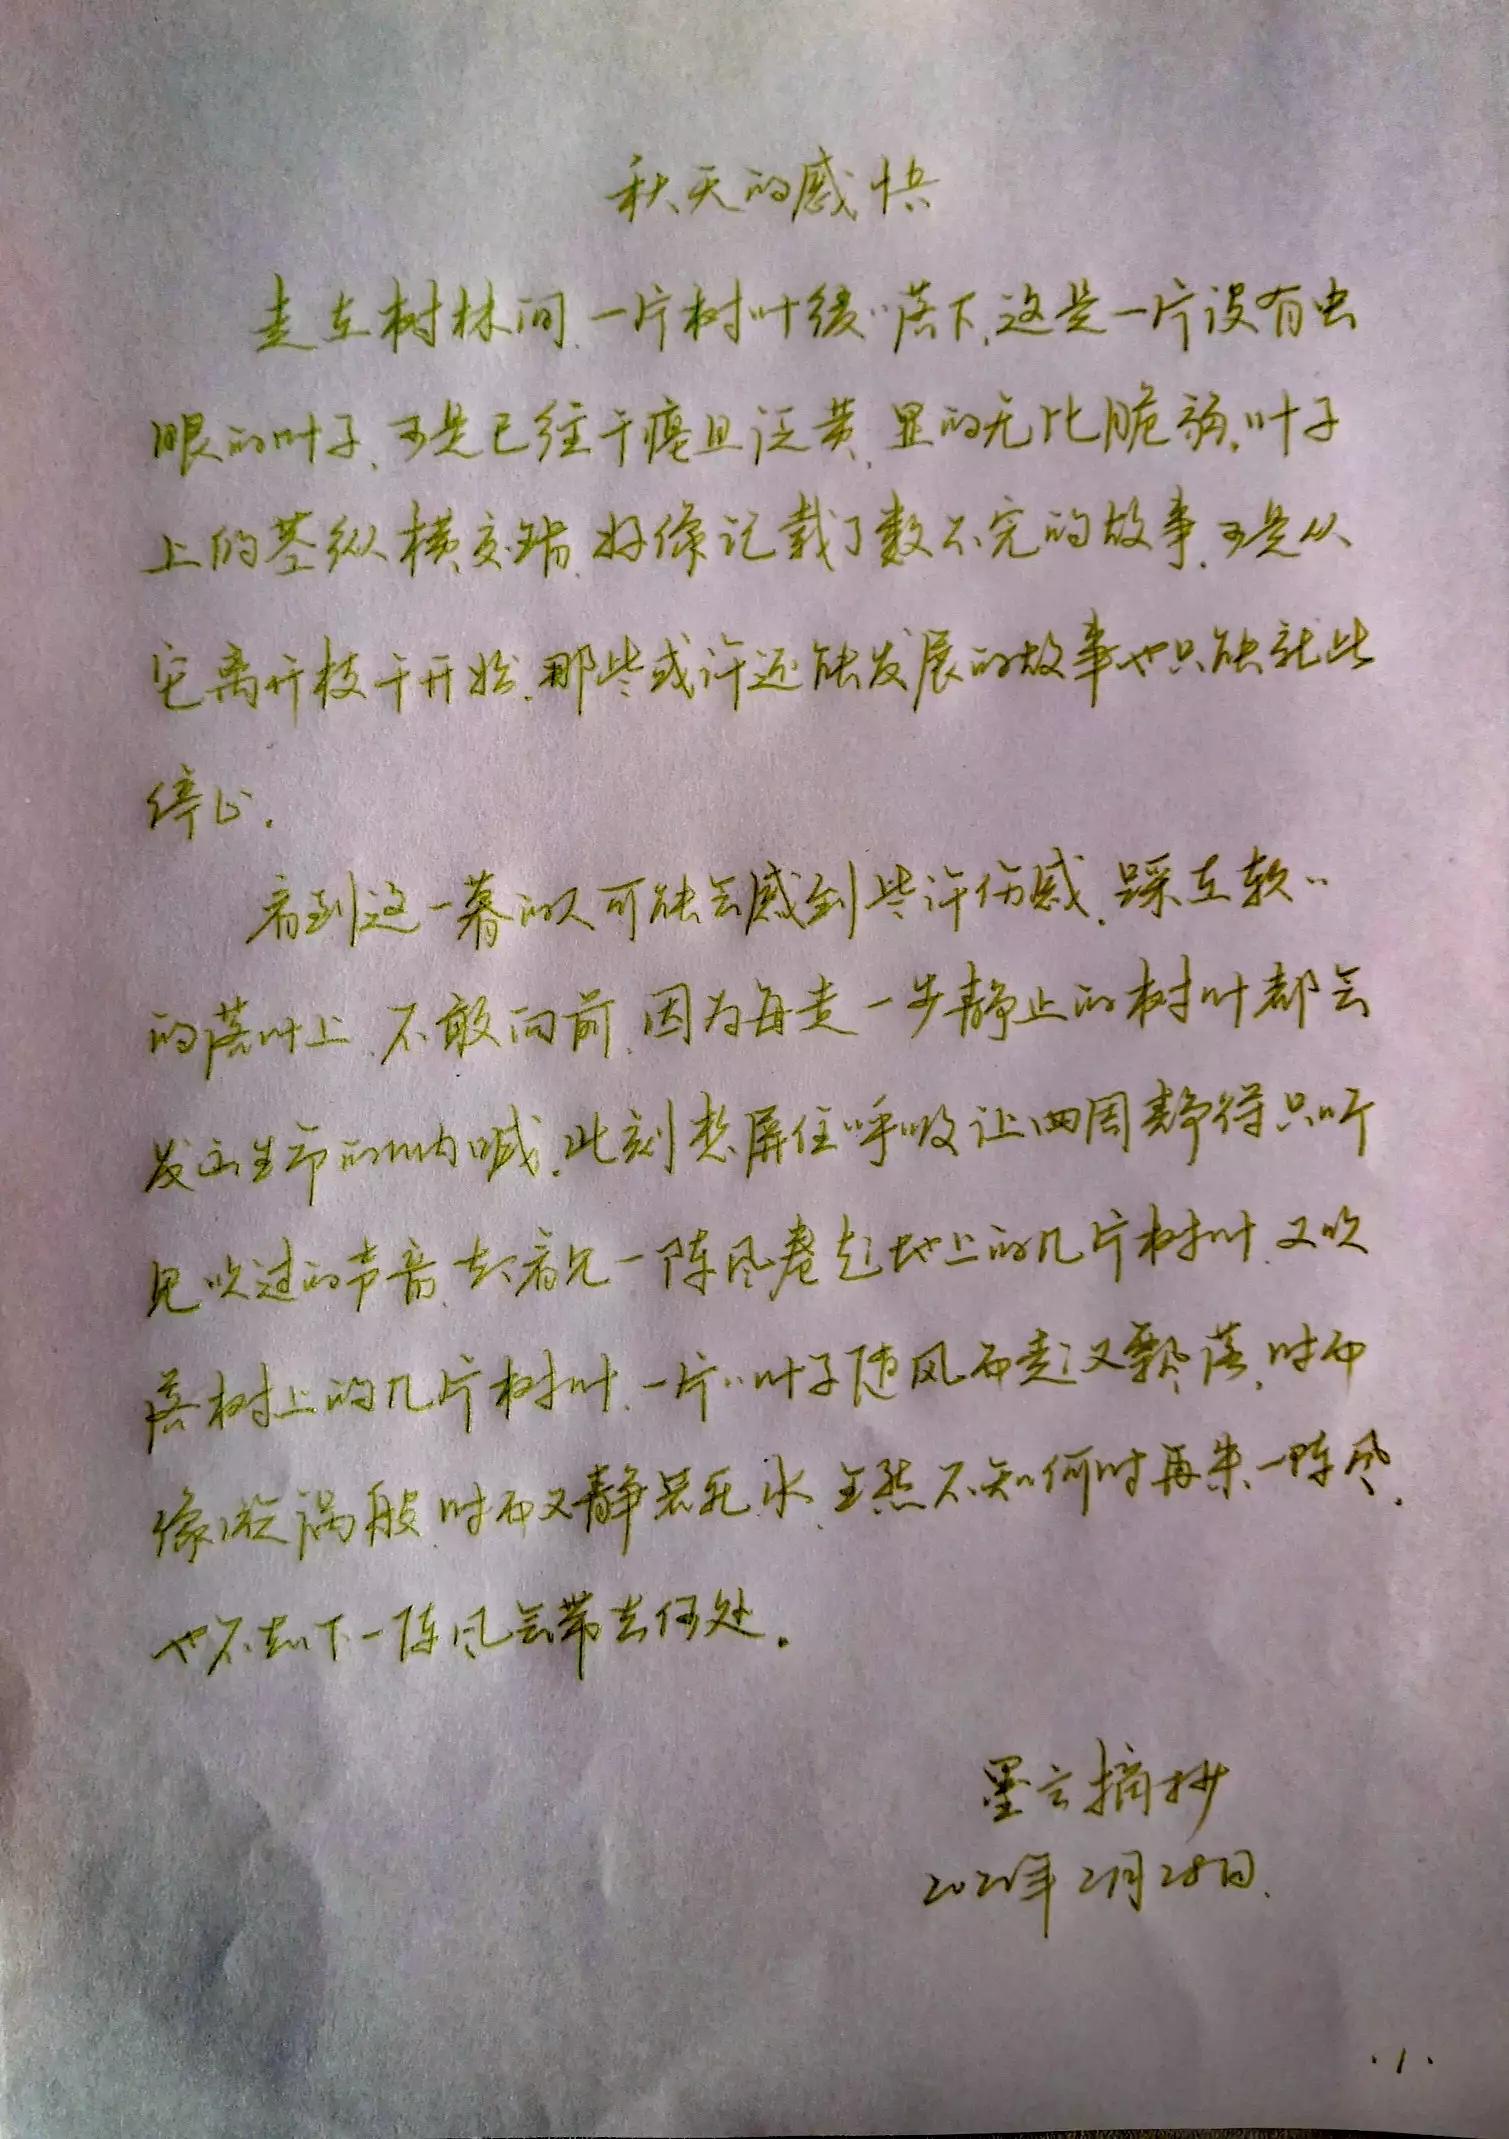 秋天的感怀
走在树林间,一片树叶缓〃落下,这是一片没有虫
眼的叶子,可是已经干瘪且泛黄,显的无比脆弱。叶子
上的茎纵横交错,好像记载了数不完的故事,可是从
它离开枝干开始,那些或许还能发展的故事也只能就此
停止.
看到这一幕的人可能会感到些许伤感,踩在软〃
的落叶上,不敢向前,因为每走一步静止的树叶都会
发出生命的呐喊,此刻想屏住呼吸让四周静得只听
见吹过的声音,却看见一阵风卷起地上的几片树叶,又吹
落树上的几片树叶,一片〃叶子随风而起又飘落,时而
像漩涡般,时而又静若死水,全然不知何时再来一阵风,
也不知下一阵风会带去何处。
墨云摘抄
年2月28日.
·1·